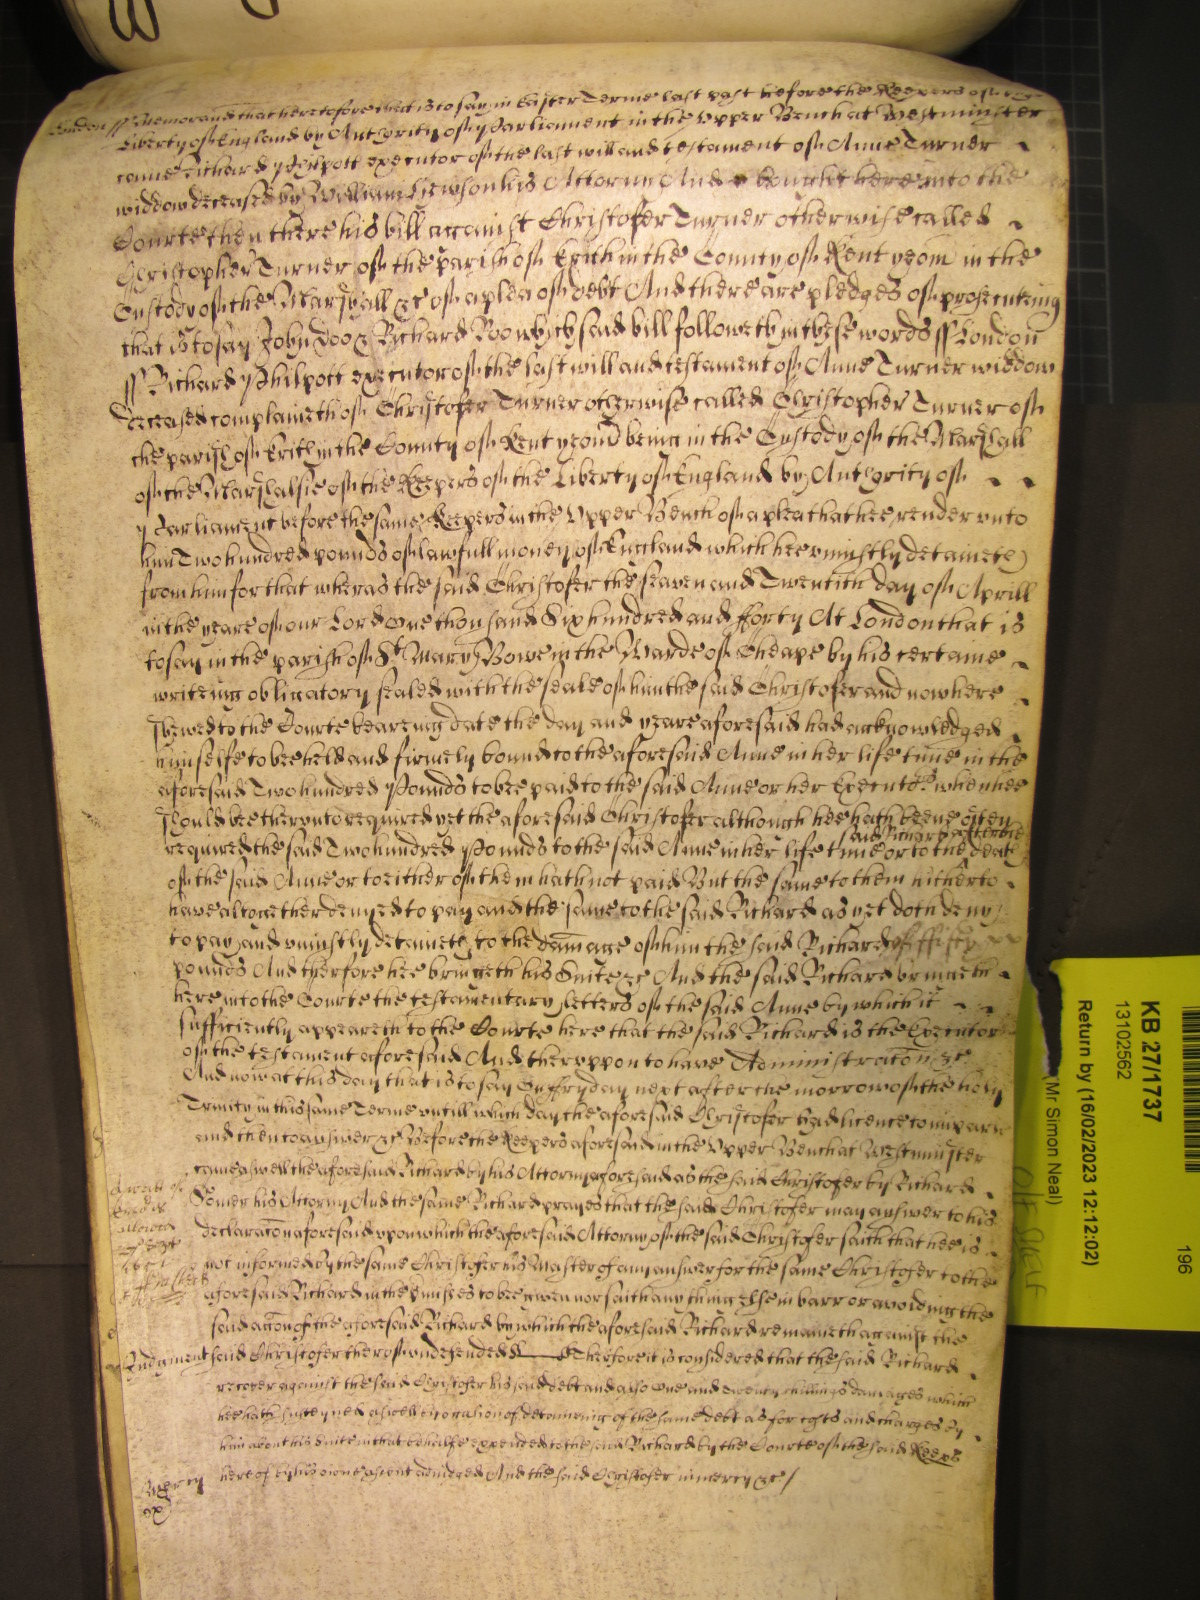 London ss Memorand that heretofore that is to say in Easter Terme last past before the Keepers of the
Liberty of England by Authority of Parliament in the Upper Bench at Westminster
came Richard Philpott executor of the last will and testament of Anne Turner
widdow deceased by William Hewson his Attorny And brought here into the
Courte then there his bill against Christofer Turner otherwise called
Christopher Turner of the parish of Erith in the County of Kent yeom in the
Custody of the Marshall &c of a plea of debt And there are pledges of prosecuting
that is to say John Doo & Richard Roo which said bill followeth in these words ss London
ss Richard Philpott executor of the last will and testament of Anne Turner widdow
deceased complaineth of Christofer Turner otherwise called Christopher Turner of
the parish of Erith in the County of Kent yeom being in the Custody of the Marshall
of the Marshalsie of the Keepers of the Liberty of England by Authority of
Parliament before the same Keepers in the Upper Bench of a plea that hee render unto
him Two hundred pounds of lawfull money of England which hee uniustly detaineth
from him for that wheras the said Christofer the seaven and Twentith day of Aprill
in the yeare of our Lord One thousand Six hundred and fforty At London that is
to say in the parish of St Mary Bowe in the Warde of Cheape by his certaine
writeing obligatory sealed with the seale of him the said Christofer and now here
shewed to the Courte beareing date the day and yeare aforesaid had acknowledged
himselfe to bee held and firmely bound to the aforesaid Anne in her life time in the
aforesaid Two hundred Pounds to bee paid to the said Anne or her Executors when hee
should bee therunto required yet the aforesaid Christofer although hee hath beene often
said Richard after the
required the said Two hundred Pounds to the said Anne in her life time or to the death
of the said Anne or to either of them hath not paid But the same to them hitherto
have altogether denyed to pay and the same to the said Richard as yet doth deny
to pay and uniustly detaineth to the damage of him the said Richard of fifty
pounds And therfore hee bringeth his Suite &c And the said Richard bringeth
here into the Courte the testamentary letters of the said Anne by which it
sufficiently appeareth to the Courte here that the said Richard is the Executor
of the testament aforesaid And theruppon to have Administracon &c
And now at this day that is to say on ffryday next after the morrow of the holy
Trinity in this same Terme untill which day the aforesaid Christofer had licence to imparle
and then to answer &c Before the Keepers aforesaid in the Upper Bench at Westminster
came aswell the aforesaid Richard by his Attorny aforesaid as the said Christofer by Richard
his Attorny And the same Richard prayes that the said Christofer may answer to his
declaracon aforesaid upon which the aforesaid Attorny of the said Christofer saith that hee is
not informed by the same Christofer his Master of any answer for the same Christofer to the
aforesaid Richard in the premises to bee given nor saith any thing else in barr or avoiding the
said accon of the aforesaid Richard by which the aforesaid Richard remaineth against the
Judgment said Christofer therof undefended Therfore it is considered that the said Richard
recover against the said Christofer his said debt and also One and twenty shillings damages which
hee hath susteyned aswell by occasion of detaineing of the same debt as for costs and charges by
him about his Suite in that behalfe expended to the said Richard by the Courte of the said Keeps
Mercy hereof by his owne assent adiudged And the said Christofer in mercy &c
KB 27/1737
13102562
Return by (16/02/2023 12:12:02)
(Mr Simon Neal)
196